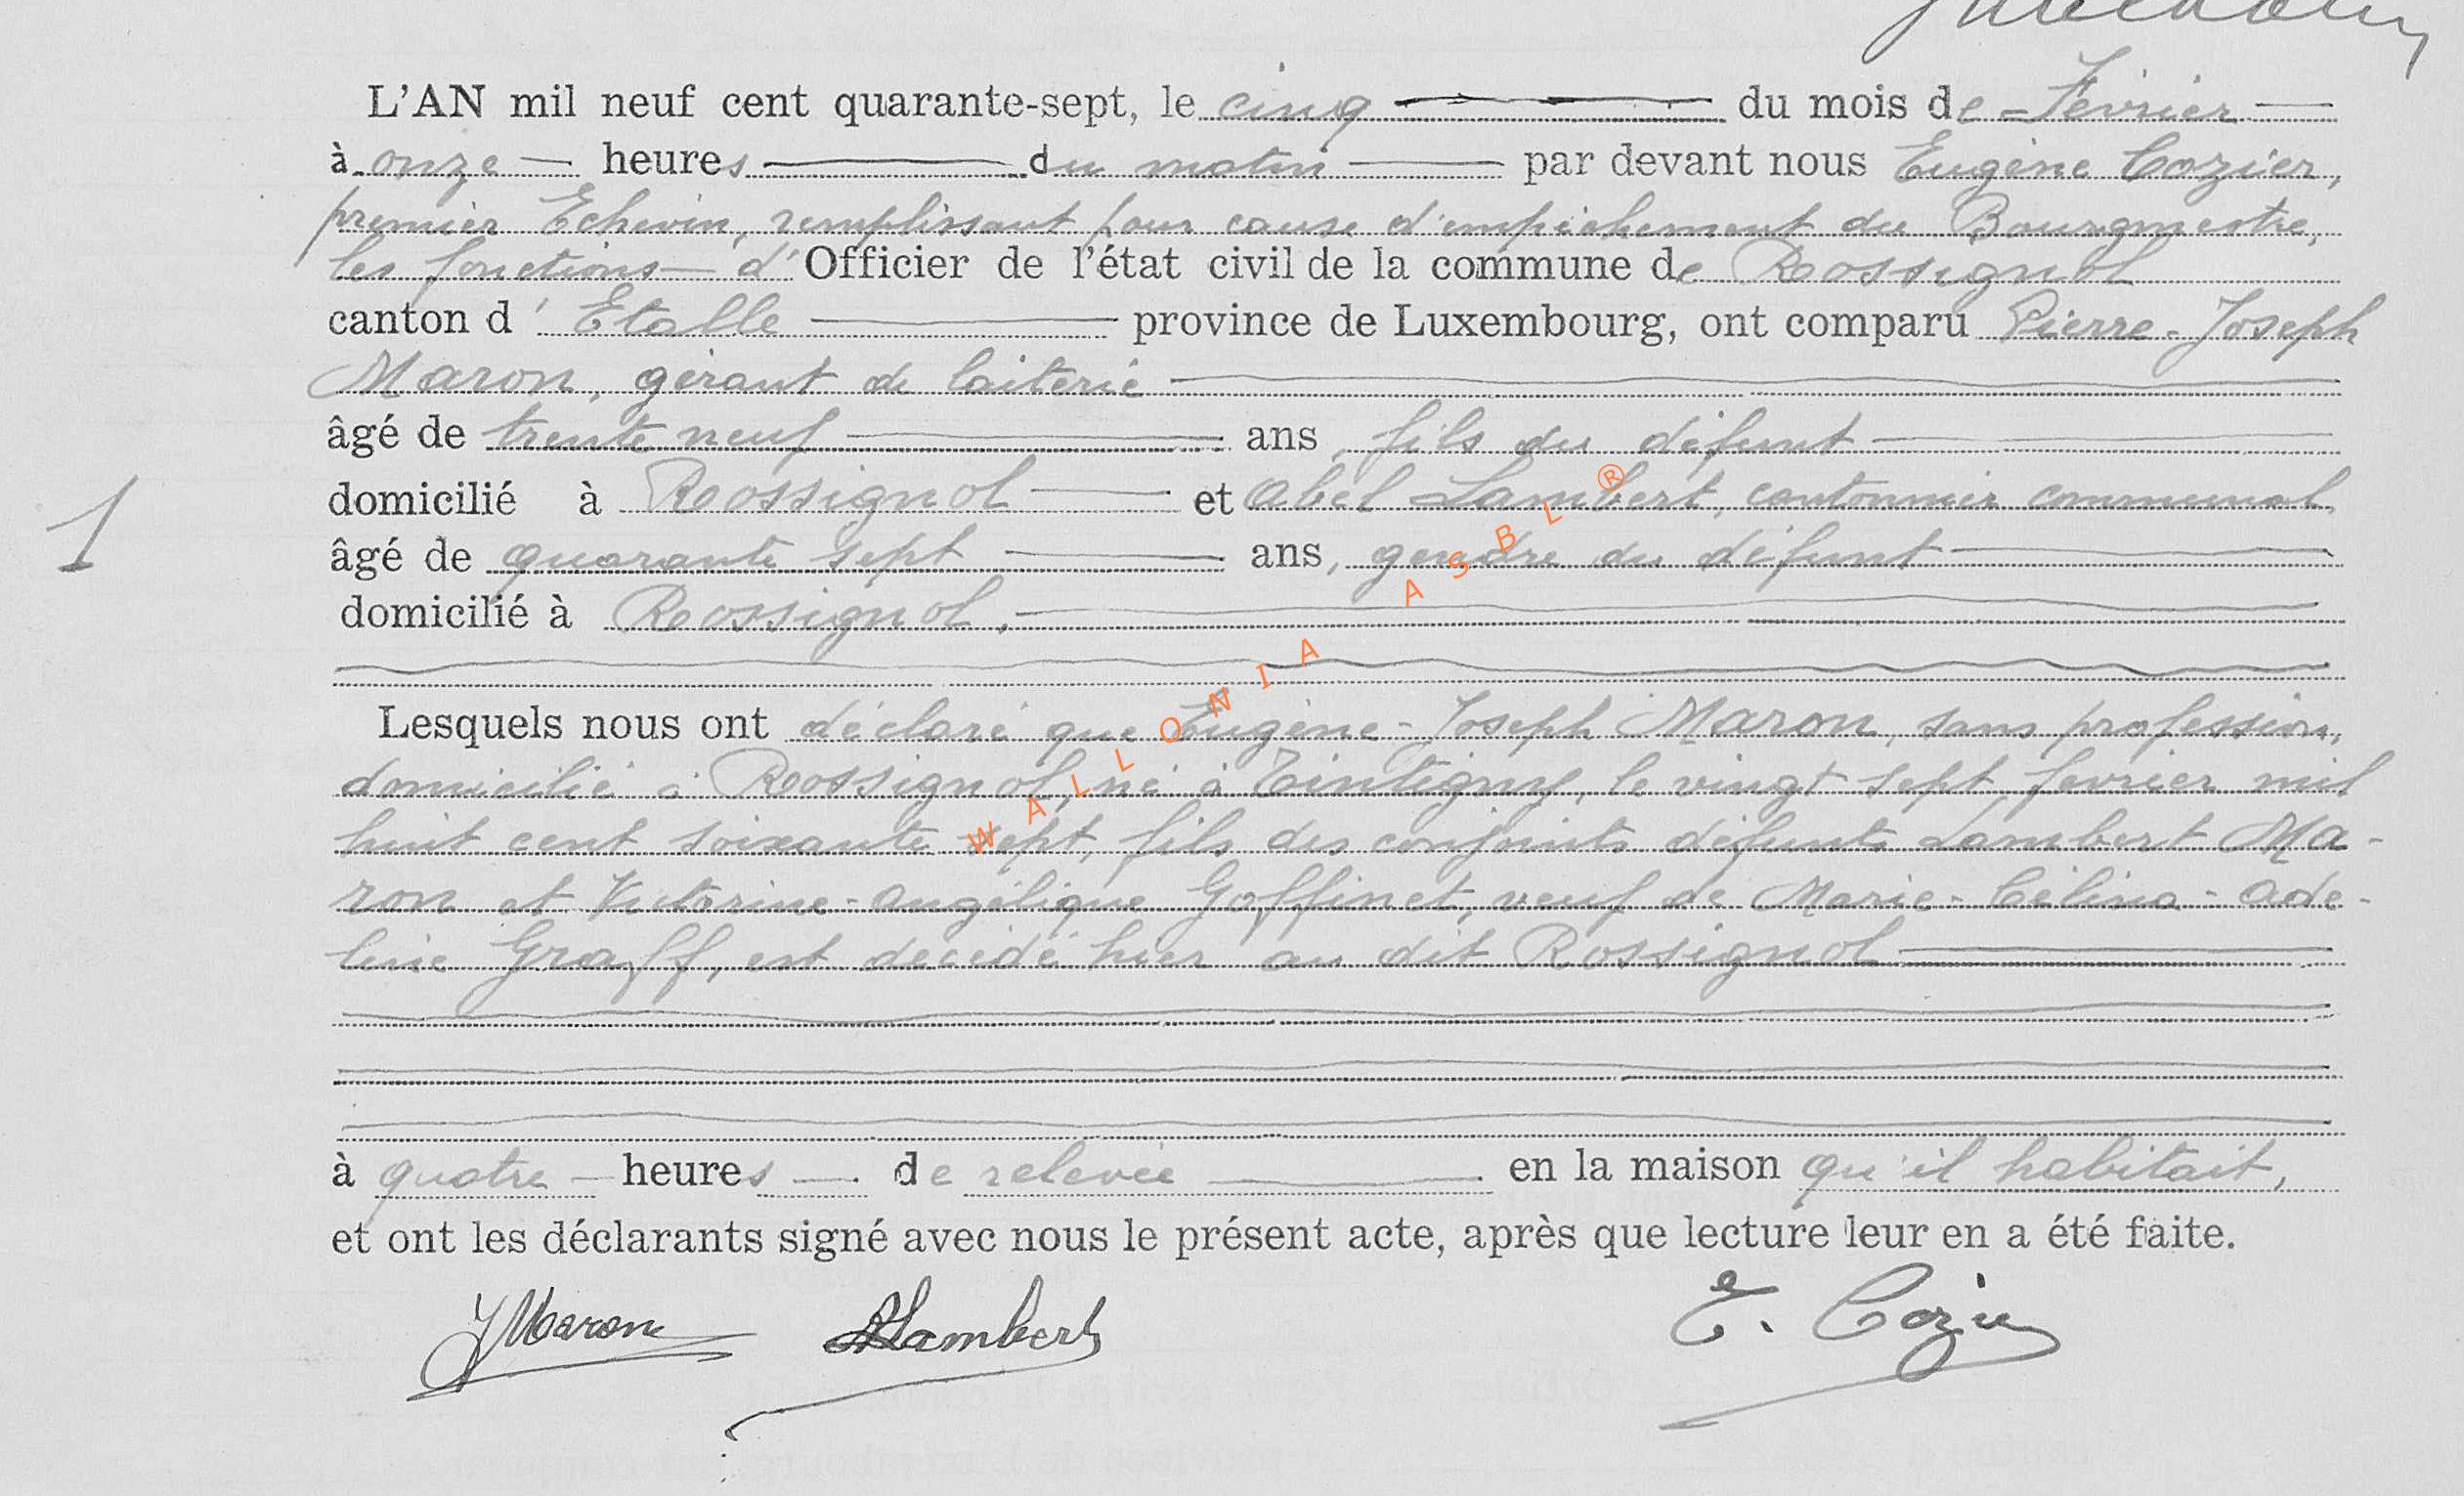 L'AN mil neuf cent quarante-sept, le cinq du mois de Février
à onze heures du matin par devant nous Eugène Cozier,
premier Echevin, remplissant pour cause d'empêchement du Bourgmestre,
les fonctions d'Officier de l'état civil de la commune de Rossignol
canton d'Etalle province de Luxembourg, ont comparu Pierre-Joseph
Maron, gérant de laiterie
âgé de trente neuf ans, fils du défunt
domicilié à Rossignol et Abel Lambert, cantonnier communal,
1
âgé de quarante sept ans, gendre du défunt
domicilié à Rossignol.
Lesquels nous ont déclaré que Eugène-Joseph Maron, sans profession,
domicilié à Rossignol, né à Tintigny, le vingt sept février mil
huit cent soixante sept, fils des conjoints défunts Lambert Ma-
ron et Victorine-Angélique Goffinet, veuf de Marie-Célina-Ade-
line Graff, est décédé hier au dit Rossignol
à quatre heures de relevée en la maison qu'il habitait,
et ont les déclarants signé avec nous le présent acte, après que lecture leur en a été faite.
JMaron ALambert E. Cozier
WALLONIA ASBL ®